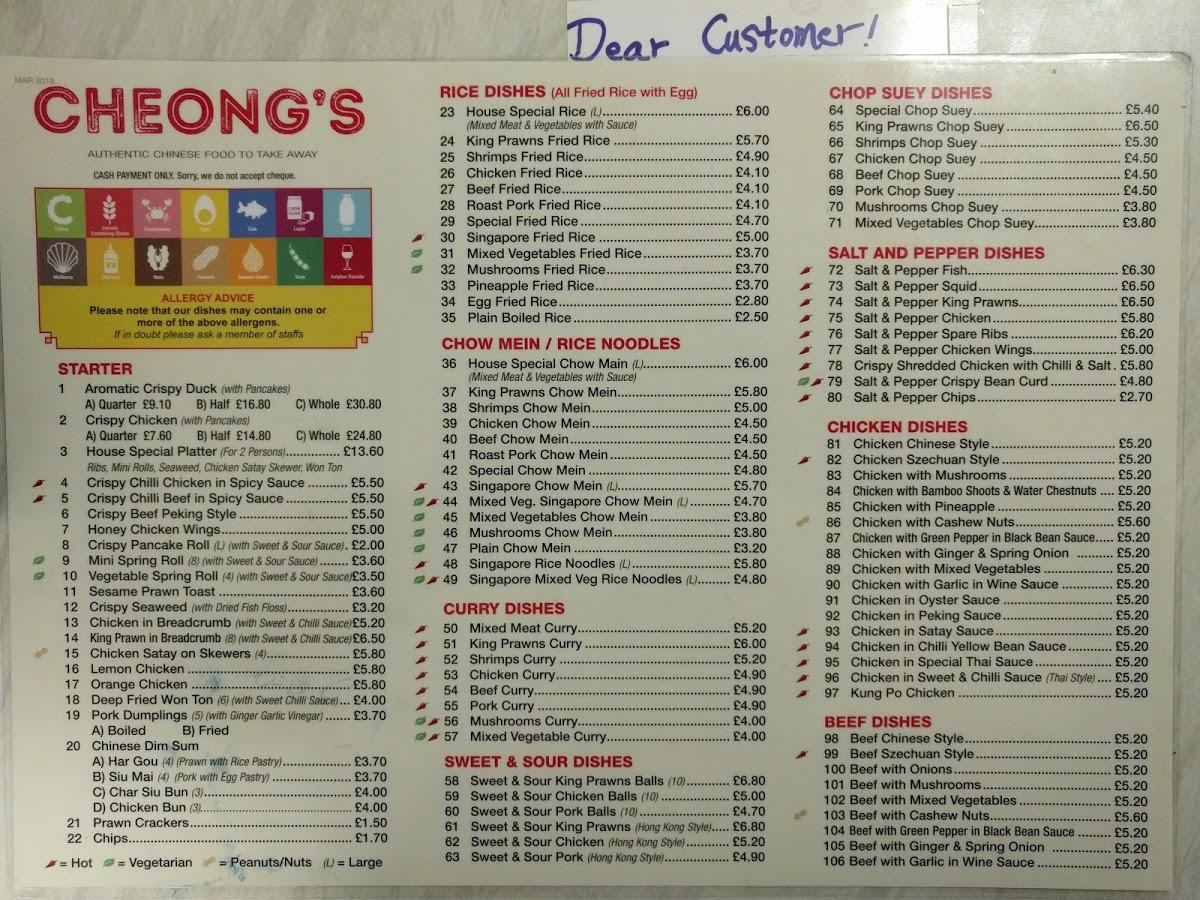 Dear Customer!
MAR 2018
CHEONG'S
AUTHENTIC CHINESE FOOD TO TAKE AWAY
CASH PAYMENT ONLY. Sorry, we do not accept cheque.
Celery
Cereals Containing Gluten
Crustaceans
Eggs
Fish
Lupin
Milk
Molluscs
Mustard
Nuts
Peanuts
Sesame Seeds
Soya
Sulphur Dioxide
ALLERGY ADVICE
Please note that our dishes may contain one or
more of the above allergens.
If in doubt please ask a member of staffs
STARTER
1 Aromatic Crispy Duck (with Pancakes)
A) Quarter £9.10 B) Half £16.80 C) Whole £30.80
2 Crispy Chicken (with Pancakes)
A) Quarter £7.60 B) Half £14.80 C) Whole £24.80
3 House Special Platter (For 2 Persons).............. £13.60
Ribs, Mini Rolls, Seaweed, Chicken Satay Skewer, Won Ton
4 Crispy Chilli Chicken in Spicy Sauce .......... £5.50
5 Crispy Chilli Beef in Spicy Sauce .............. £5.50
6 Crispy Beef Peking Style ......................... £5.50
7 Honey Chicken Wings............................ £5.00
8 Crispy Pancake Roll (L) (with Sweet & Sour Sauce). £2.00
9 Mini Spring Roll (8) (with Sweet & Sour Sauce) ....... £3.60
10 Vegetable Spring Roll (4) (with Sweet & Sour Sauce)£3.50
11 Sesame Prawn Toast ............................. £3.60
12 Crispy Seaweed (with Dried Fish Floss)............... £3.20
13 Chicken in Breadcrumb (with Sweet & Chilli Sauce)£5.20
14 King Prawn in Breadcrumb (8) (with Sweet & Chilli Sauce)£6.50
15 Chicken Satay on Skewers (4)................... £5.80
16 Lemon Chicken .................................... £5.80
17 Orange Chicken ................................... £5.80
18 Deep Fried Won Ton (6) (with Sweet Chilli Sauce)... £4.00
19 Pork Dumplings (5) (with Ginger Garlic Vinegar) ....... £3.70
A) Boiled B) Fried
20 Chinese Dim Sum
A) Har Gou (4) (Prawn with Rice Pastry) ................. £3.70
B) Siu Mai (4) (Pork with Egg Pastry) .................... £3.70
C) Char Siu Bun (3)............................... £4.00
D) Chicken Bun (3)................................ £4.00
21 Prawn Crackers.................................... £1.50
22 Chips................................................ £1.70
= Hot = Vegetarian = Peanuts/Nuts (L) = Large
RICE DISHES (All Fried Rice with Egg)
23 House Special Rice (L)............................ £6.00
(Mixed Meat & Vegetables with Sauce)
24 King Prawns Fried Rice .......................... £5.70
25 Shrimps Fried Rice................................ £4.90
26 Chicken Fried Rice ............................... £4.10
27 Beef Fried Rice.................................... £4.10
28 Roast Pork Fried Rice............................ £4.10
29 Special Fried Rice ................................ £4.70
30 Singapore Fried Rice ............................ £5.00
31 Mixed Vegetables Fried Rice................... £3.70
32 Mushrooms Fried Rice........................... £3.70
33 Pineapple Fried Rice............................. £3.70
34 Egg Fried Rice..................................... £2.80
35 Plain Boiled Rice .................................. £2.50
CHOW MEIN / RICE NOODLES
36 House Special Chow Main (L)................... £6.00
(Mixed Meat & Vegetables with Sauce)
37 King Prawns Chow Mein........................ £5.80
38 Shrimps Chow Mein.............................. £5.00
39 Chicken Chow Mein.............................. £4.50
40 Beef Chow Mein.................................. £4.50
41 Roast Pork Chow Mein ......................... £4.50
42 Special Chow Mein .............................. £4.80
43 Singapore Chow Mein (L)....................... £5.70
44 Mixed Veg. Singapore Chow Mein (L) ........ £4.70
45 Mixed Vegetables Chow Mein ................. £3.80
46 Mushrooms Chow Mein......................... £3.80
47 Plain Chow Mein ................................. £3.20
48 Singapore Rice Noodles (L)..................... £5.80
49 Singapore Mixed Veg Rice Noodles (L)....... £4.80
CURRY DISHES
50 Mixed Meat Curry................................. £5.20
51 King Prawns Curry ............................... £6.00
52 Shrimps Curry .................................... £5.20
53 Chicken Curry..................................... £4.90
54 Beef Curry......................................... £4.90
55 Pork Curry ........................................ £4.90
56 Mushrooms Curry................................ £4.00
57 Mixed Vegetable Curry.......................... £4.00
SWEET & SOUR DISHES
58 Sweet & Sour King Prawns Balls (10)......... £6.80
59 Sweet & Sour Chicken Balls (10) .............. £5.00
60 Sweet & Sour Pork Balls (10)................... £4.70
61 Sweet & Sour King Prawns (Hong Kong Style).... £6.80
62 Sweet & Sour Chicken (Hong Kong Style).......... £5.20
63 Sweet & Sour Pork (Hong Kong Style).............. £4.90
CHOP SUEY DISHES
64 Special Chop Suey............................... £5.40
65 King Prawns Chop Suey ........................ £6.50
66 Shrimps Chop Suey ............................. £5.30
67 Chicken Chop Suey ............................. £4.50
68 Beef Chop Suey ................................. £4.50
69 Pork Chop Suey ................................. £4.50
70 Mushrooms Chop Suey ........................ £3.80
71 Mixed Vegetables Chop Suey.................. £3.80
SALT AND PEPPER DISHES
72 Salt & Pepper Fish............................... £6.30
73 Salt & Pepper Squid............................. £6.50
74 Salt & Pepper King Prawns..................... £6.50
75 Salt & Pepper Chicken .......................... £5.80
76 Salt & Pepper Spare Ribs ...................... £6.20
77 Salt & Pepper Chicken Wings.................. £5.00
78 Crispy Shredded Chicken with Chilli & Salt . £5.80
79 Salt & Pepper Crispy Bean Curd .............. £4.80
80 Salt & Pepper Chips............................. £2.70
CHICKEN DISHES
81 Chicken Chinese Style.......................... £5.20
82 Chicken Szechuan Style ........................ £5.20
83 Chicken with Mushrooms ...................... £5.20
84 Chicken with Bamboo Shoots & Water Chestnuts .... £5.20
85 Chicken with Pineapple ......................... £5.20
86 Chicken with Cashew Nuts..................... £5.60
87 Chicken with Green Pepper in Black Bean Sauce..... £5.20
88 Chicken with Ginger & Spring Onion ......... £5.20
89 Chicken with Mixed Vegetables ............... £5.20
90 Chicken with Garlic in Wine Sauce ........... £5.20
91 Chicken in Oyster Sauce ....................... £5.20
92 Chicken in Peking Sauce ....................... £5.20
93 Chicken in Satay Sauce ........................ £5.20
94 Chicken in Chilli Yellow Bean Sauce.......... £5.20
95 Chicken in Special Thai Sauce ................ £5.20
96 Chicken in Sweet & Chilli Sauce (Thai Style) .... £5.20
97 Kung Po Chicken ................................ £5.20
BEEF DISHES
98 Beef Chinese Style.............................. £5.20
99 Beef Szechuan Style............................ £5.20
100 Beef with Onions................................ £5.20
101 Beef with Mushrooms.......................... £5.20
102 Beef with Mixed Vegetables .................. £5.20
103 Beef with Cashew Nuts........................ £5.60
104 Beef with Green Pepper in Black Bean Sauce ....... £5.20
105 Beef with Ginger & Spring Onion ............ £5.20
106 Beef with Garlic in Wine Sauce .............. £5.20